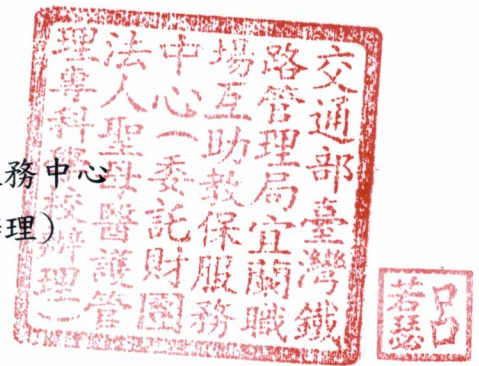 交通部臺灣鐵
路管理局宜蘭職
場互助教保服務
中心(委託財團
法人聖母醫護管
理專科學校辦理)
務中心
理)
呂
若瑟